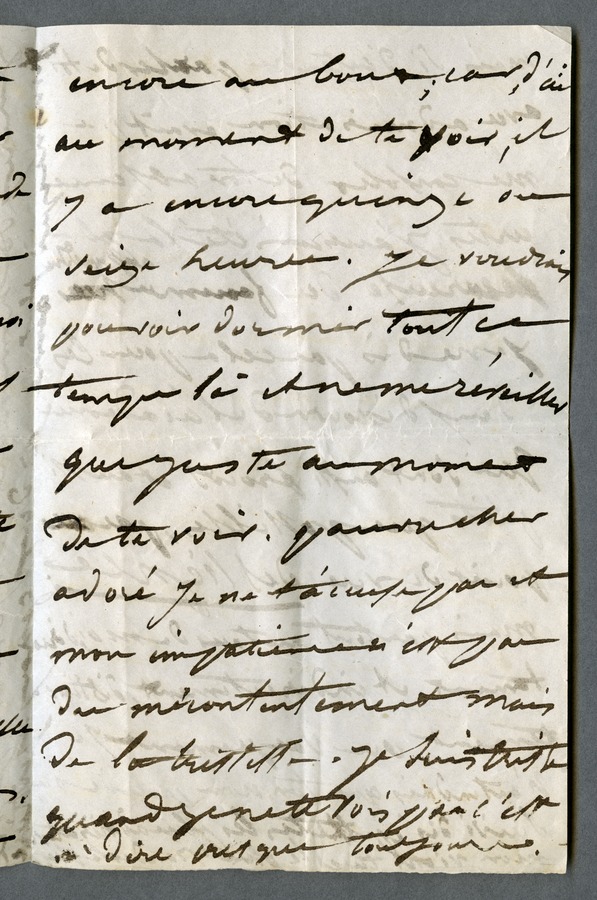 encore au bout, car, d'ici
au moment de te voir, il
y a encore quinze ou
seize heures. Je voudrais
pouvoir dormir tout ce
temps là et ne me réveiller
que juste au moment
de te voir. pauvre cher
adoré je ne t'accuse pas et
mon impatience n'est pas
du mécontentement mais
de la tristesse. je suis triste
quand je ne te vois pas c'est
à dire presque toujours.